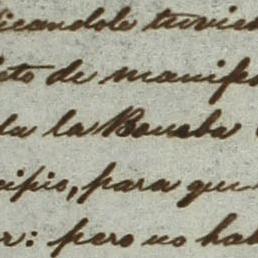 icandole tuvies
to de manifes
da la Bomba
cipio, para que
r: pero no hab